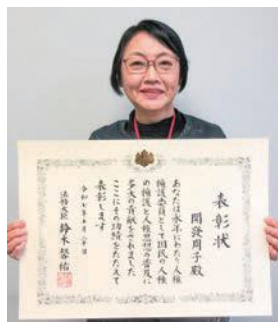 表彰状
開發周子殿
あなたは永年にわたり人権
擁護委員として国民の人権
の擁護と人権思想の普及に
多大の貢献をされました
ここにその功績をたたえて
表彰します
令和七年十月
法務大臣 鈴木馨祐